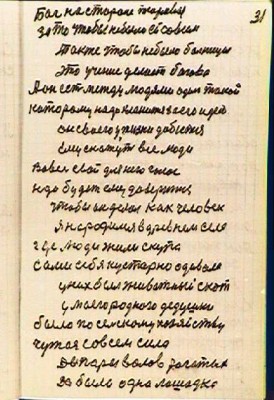 31
Бог на стороне
за то чтобы небыло совсем
также чтобы небыло больницы
это учение делает бога
А он ест между людями один такой
которому надо кланятся его
он своего у жизни добется
ему скажут все люди
свой для него
надо будет ему доверятц
чтобы он делал как человек
я народился в древнем селе
где люди жили скупа
сами себя кустарно одевале
у них был животный скот
у моего родного дедушки
было по сельскому хозяйству
чужая совсем сила
две пары волов рогатых
да была одна лошадка